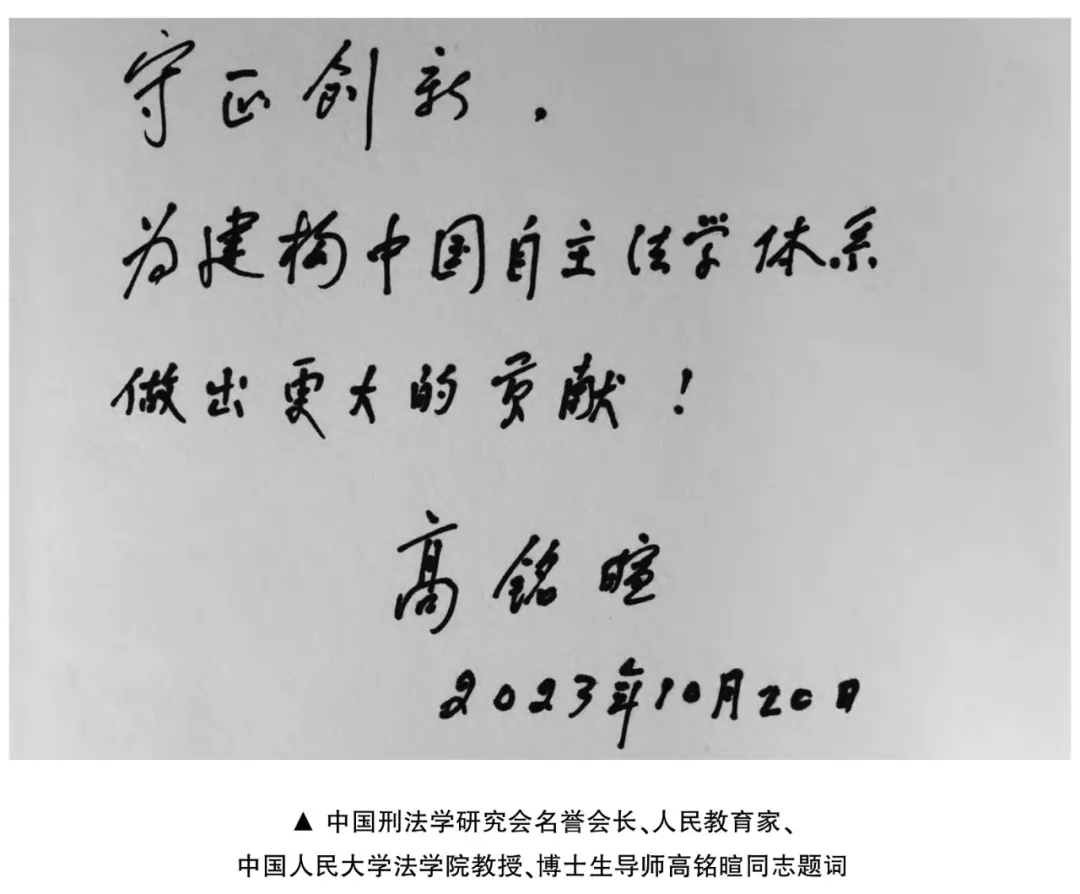 守正创新，
为建构中国自主法学体系
做出更大的贡献！
高铭暄
2023年10月20日
▲ 中国刑法学研究会名誉会长、人民教育家、
中国人民大学法学院教授、博士生导师高铭暄同志题词